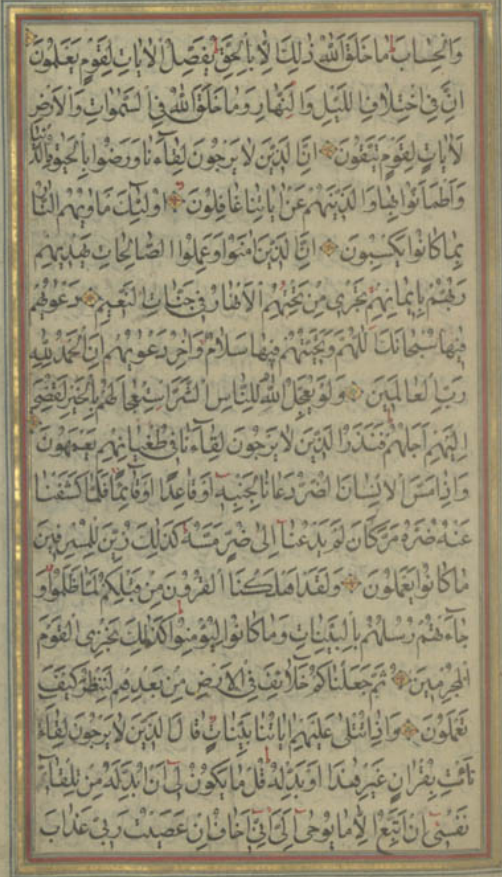 وَالْحِسَابَ مَا خَلَقَ اللّٰهُ ذٰلِكَ اِلَّا بِالْحَقِّ يُفَصِّلُ الْاٰيَاتِ لِقَوْمٍ يَعْلَمُونَ
اِنَّ فِي اخْتِلَافِ اللَّيْلِ وَالنَّهَارِ وَمَا خَلَقَ اللّٰهُ فِي السَّمٰوَاتِ وَالْاَرْضِ
لَاٰيَاتٍ لِقَوْمٍ يَتَّقُونَ اِنَّ الَّذِينَ لَا يَرْجُونَ لِقَاءَنَا وَرَضُوا بِالْحَيٰوةِ الدُّنْيَا
وَاطْمَاَنُّوا بِهَا وَالَّذِينَ هُمْ عَنْ اٰيَاتِنَا غَافِلُونَ اُولٰئِكَ مَاْوٰيهُمُ النَّارُ
بِمَا كَانُوا يَكْسِبُونَ اِنَّ الَّذِينَ اٰمَنُوا وَعَمِلُوا الصَّالِحَاتِ يَهْدِيهِمْ
رَبُّهُمْ بِاِيمَانِهِمْ تَجْرِي مِنْ تَحْتِهِمُ الْاَنْهَارُ فِي جَنَّاتِ النَّعِيمِ دَعْوٰيهُمْ
فِيهَا سُبْحَانَكَ اللّٰهُمَّ وَتَحِيَّتُهُمْ فِيهَا سَلَامٌ وَاٰخِرُ دَعْوٰيهُمْ اَنِ الْحَمْدُ لِلّٰهِ
رَبِّ الْعَالَمِينَ وَلَوْ يُعَجِّلُ اللّٰهُ لِلنَّاسِ الشَّرَّ اسْتِعْجَالَهُمْ بِالْخَيْرِ لَقُضِيَ
اِلَيْهِمْ اَجَلُهُمْ فَنَذَرُ الَّذِينَ لَا يَرْجُونَ لِقَاءَنَا فِي طُغْيَانِهِمْ يَعْمَهُونَ
وَاِذَا مَسَّ الْاِنْسَانَ الضُّرُّ دَعَانَا لِجَنْبِهِ اَوْ قَاعِدًا اَوْ قَائِمًا فَلَمَّا كَشَفْنَا
عَنْهُ ضُرَّهُ مَرَّ كَاَنْ لَمْ يَدْعُنَا اِلٰى ضُرٍّ مَسَّهُ كَذٰلِكَ زُيِّنَ لِلْمُسْرِفِينَ
مَا كَانُوا يَعْمَلُونَ وَلَقَدْ اَهْلَكْنَا الْقُرُونَ مِنْ قَبْلِكُمْ لَمَّا ظَلَمُوا وَ
جَاءَتْهُمْ رُسُلُهُمْ بِالْبَيِّنَاتِ وَمَا كَانُوا لِيُؤْمِنُوا كَذٰلِكَ نَجْزِي الْقَوْمَ
الْمُجْرِمِينَ ثُمَّ جَعَلْنَاكُمْ خَلَائِفَ فِي الْاَرْضِ مِنْ بَعْدِهِمْ لِنَنْظُرَ كَيْفَ
تَعْمَلُونَ وَاِذَا تُتْلٰى عَلَيْهِمْ اٰيَاتُنَا بَيِّنَاتٍ قَالَ الَّذِينَ لَا يَرْجُونَ لِقَاءَنَا
ائْتِ بِقُرْاٰنٍ غَيْرِ هٰذَا اَوْ بَدِّلْهُ قُلْ مَا يَكُونُ لِي اَنْ اُبَدِّلَهُ مِنْ تِلْقَاءِ
نَفْسِي اِنْ اَتَّبِعُ اِلَّا مَا يُوحٰى اِلَيَّ اِنِّي اَخَافُ اِنْ عَصَيْتُ رَبِّي عَذَابَ